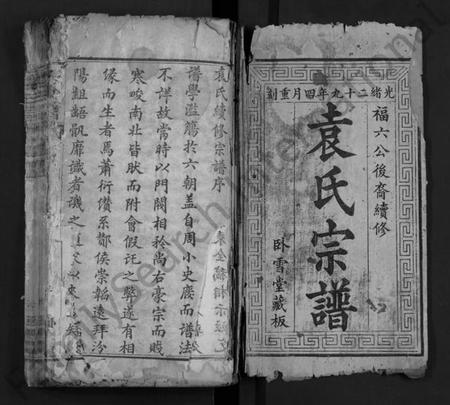 光緒二十九年四月重刻
福六公後裔續修
袁氏宗譜
臥雪堂藏板
袁氏續修宗譜序
譜學濫觴於六朝蓋自周小史廢而譜法
不詳故當時以門閥相矜尚右豪宗而賤
寒畯南北皆然而附會假託之弊遂有相
緣而生者焉蕭衍儹系酇侯崇韜遠拜汾
陽詛語骩靡識者譏之